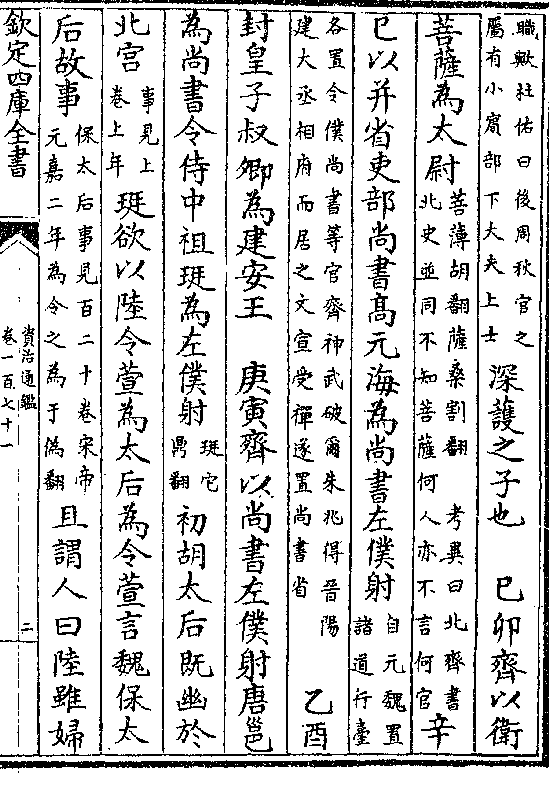 職歟杜佑曰後周秋官之
屬有小賔部下大夫上士
深護之子也 己卯齊以衛
菩薩為太尉
菩薄胡翻薩桑割翻 考異曰北齊書
北史並同不知菩薩何人亦不言何官
辛
巳以并省吏部尚書髙元海為尚書左僕射
自元魏置諸道行臺
各置令僕尚書等官齊神武破爾朱兆得晉陽
建大丞相府而居之文宣受禪遂置尚書省
乙酉
封皇子叔卿為建安王 庚寅齊以尚書左僕射唐邕
為尚書令侍中祖珽為左僕射
珽它鼎翻
初胡太后既幽於
北宫
事見上卷上年
珽欲以陸令萱為太后為令萱言魏保太
后故事
保太后事見百二十卷宋帝
元嘉二年為令之為于偽翻
且謂人曰陸雖婦
欽定四庫全書
資治通鑑
卷一百七十一
二